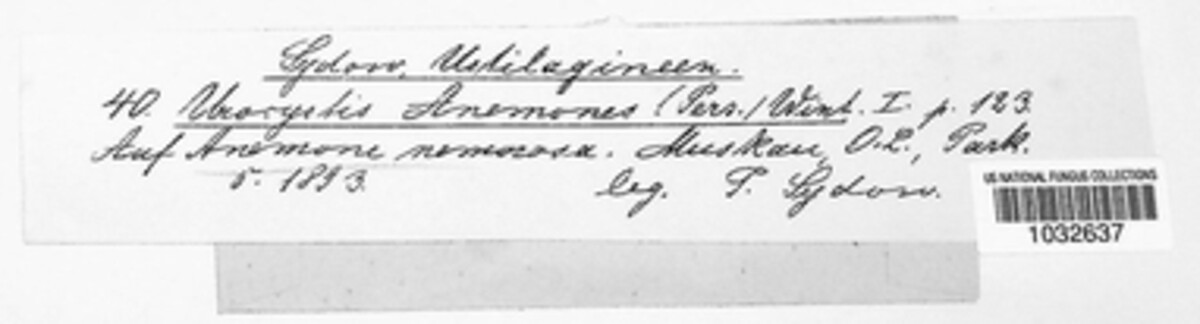 Sydow, Ustilagineen.
40. Urocystis Anemones (Pers.) Wint. I. p. 123.
Auf Anemone nemorosa. Muskau, O.L., Park.
5. 1893. leg. P. Sydow.
US NATIONAL FUNGUS COLLECTIONS
1032637